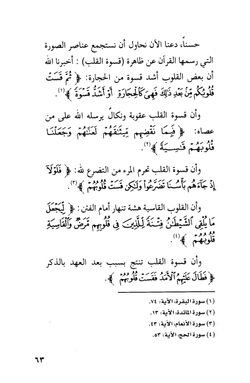 حسناً، دعنا الآن نحاول أن نستجمع عناصر الصورة
التي رسمها القرآن عن ظاهرة (قسوة القلب) : أخبرنا الله
أن بعض القلوب أشد قسوة من الحجارة: ﴿ ثُمَّ قَسَتْ
قُلُوبُكُم مِّنۢ بَعْدِ ذَٰلِكَ فَهِىَ كَٱلْحِجَارَةِ أَوْ أَشَدُّ قَسْوَةً ﴾(١).
وأن قسوة القلب عقوبة ونكالٌ يرسله الله على من
عصاه: ﴿ فَبِمَا نَقْضِهِم مِّيثَٰقَهُمْ لَعَنَّٰهُمْ وَجَعَلْنَا
قُلُوبَهُمْ قَٰسِيَةً ﴾(٢).
وأن قسوة القلب تحرم المرء من التضرع لله: ﴿ فَلَوْلَآ
إِذْ جَآءَهُم بَأْسُنَا تَضَرَّعُوا۟ وَلَٰكِن قَسَتْ قُلُوبُهُمْ ﴾(٣).
وأن القلوب القاسية هشة تنهار أمام الفتن: ﴿ لِّيَجْعَلَ
مَا يُلْقِى ٱلشَّيْطَٰنُ فِتْنَةً لِّلَّذِينَ فِى قُلُوبِهِم مَّرَضٌ وَٱلْقَاسِيَةِ
قُلُوبُهُمْ ﴾(٤).
وأن قسوة القلب تنتج بسبب بعد العهد بالذكر
﴿ فَطَالَ عَلَيْهِمُ ٱلْأَمَدُ فَقَسَتْ قُلُوبُهُمْ ﴾
(١) سورة البقرة، الآية: ٧٤.
(٢) سورة المائدة، الآية: ١٣.
(٣) سورة الأنعام، الآية: ٤٣.
(٤) سورة الحج، الآية: ٥٣.
٦٣